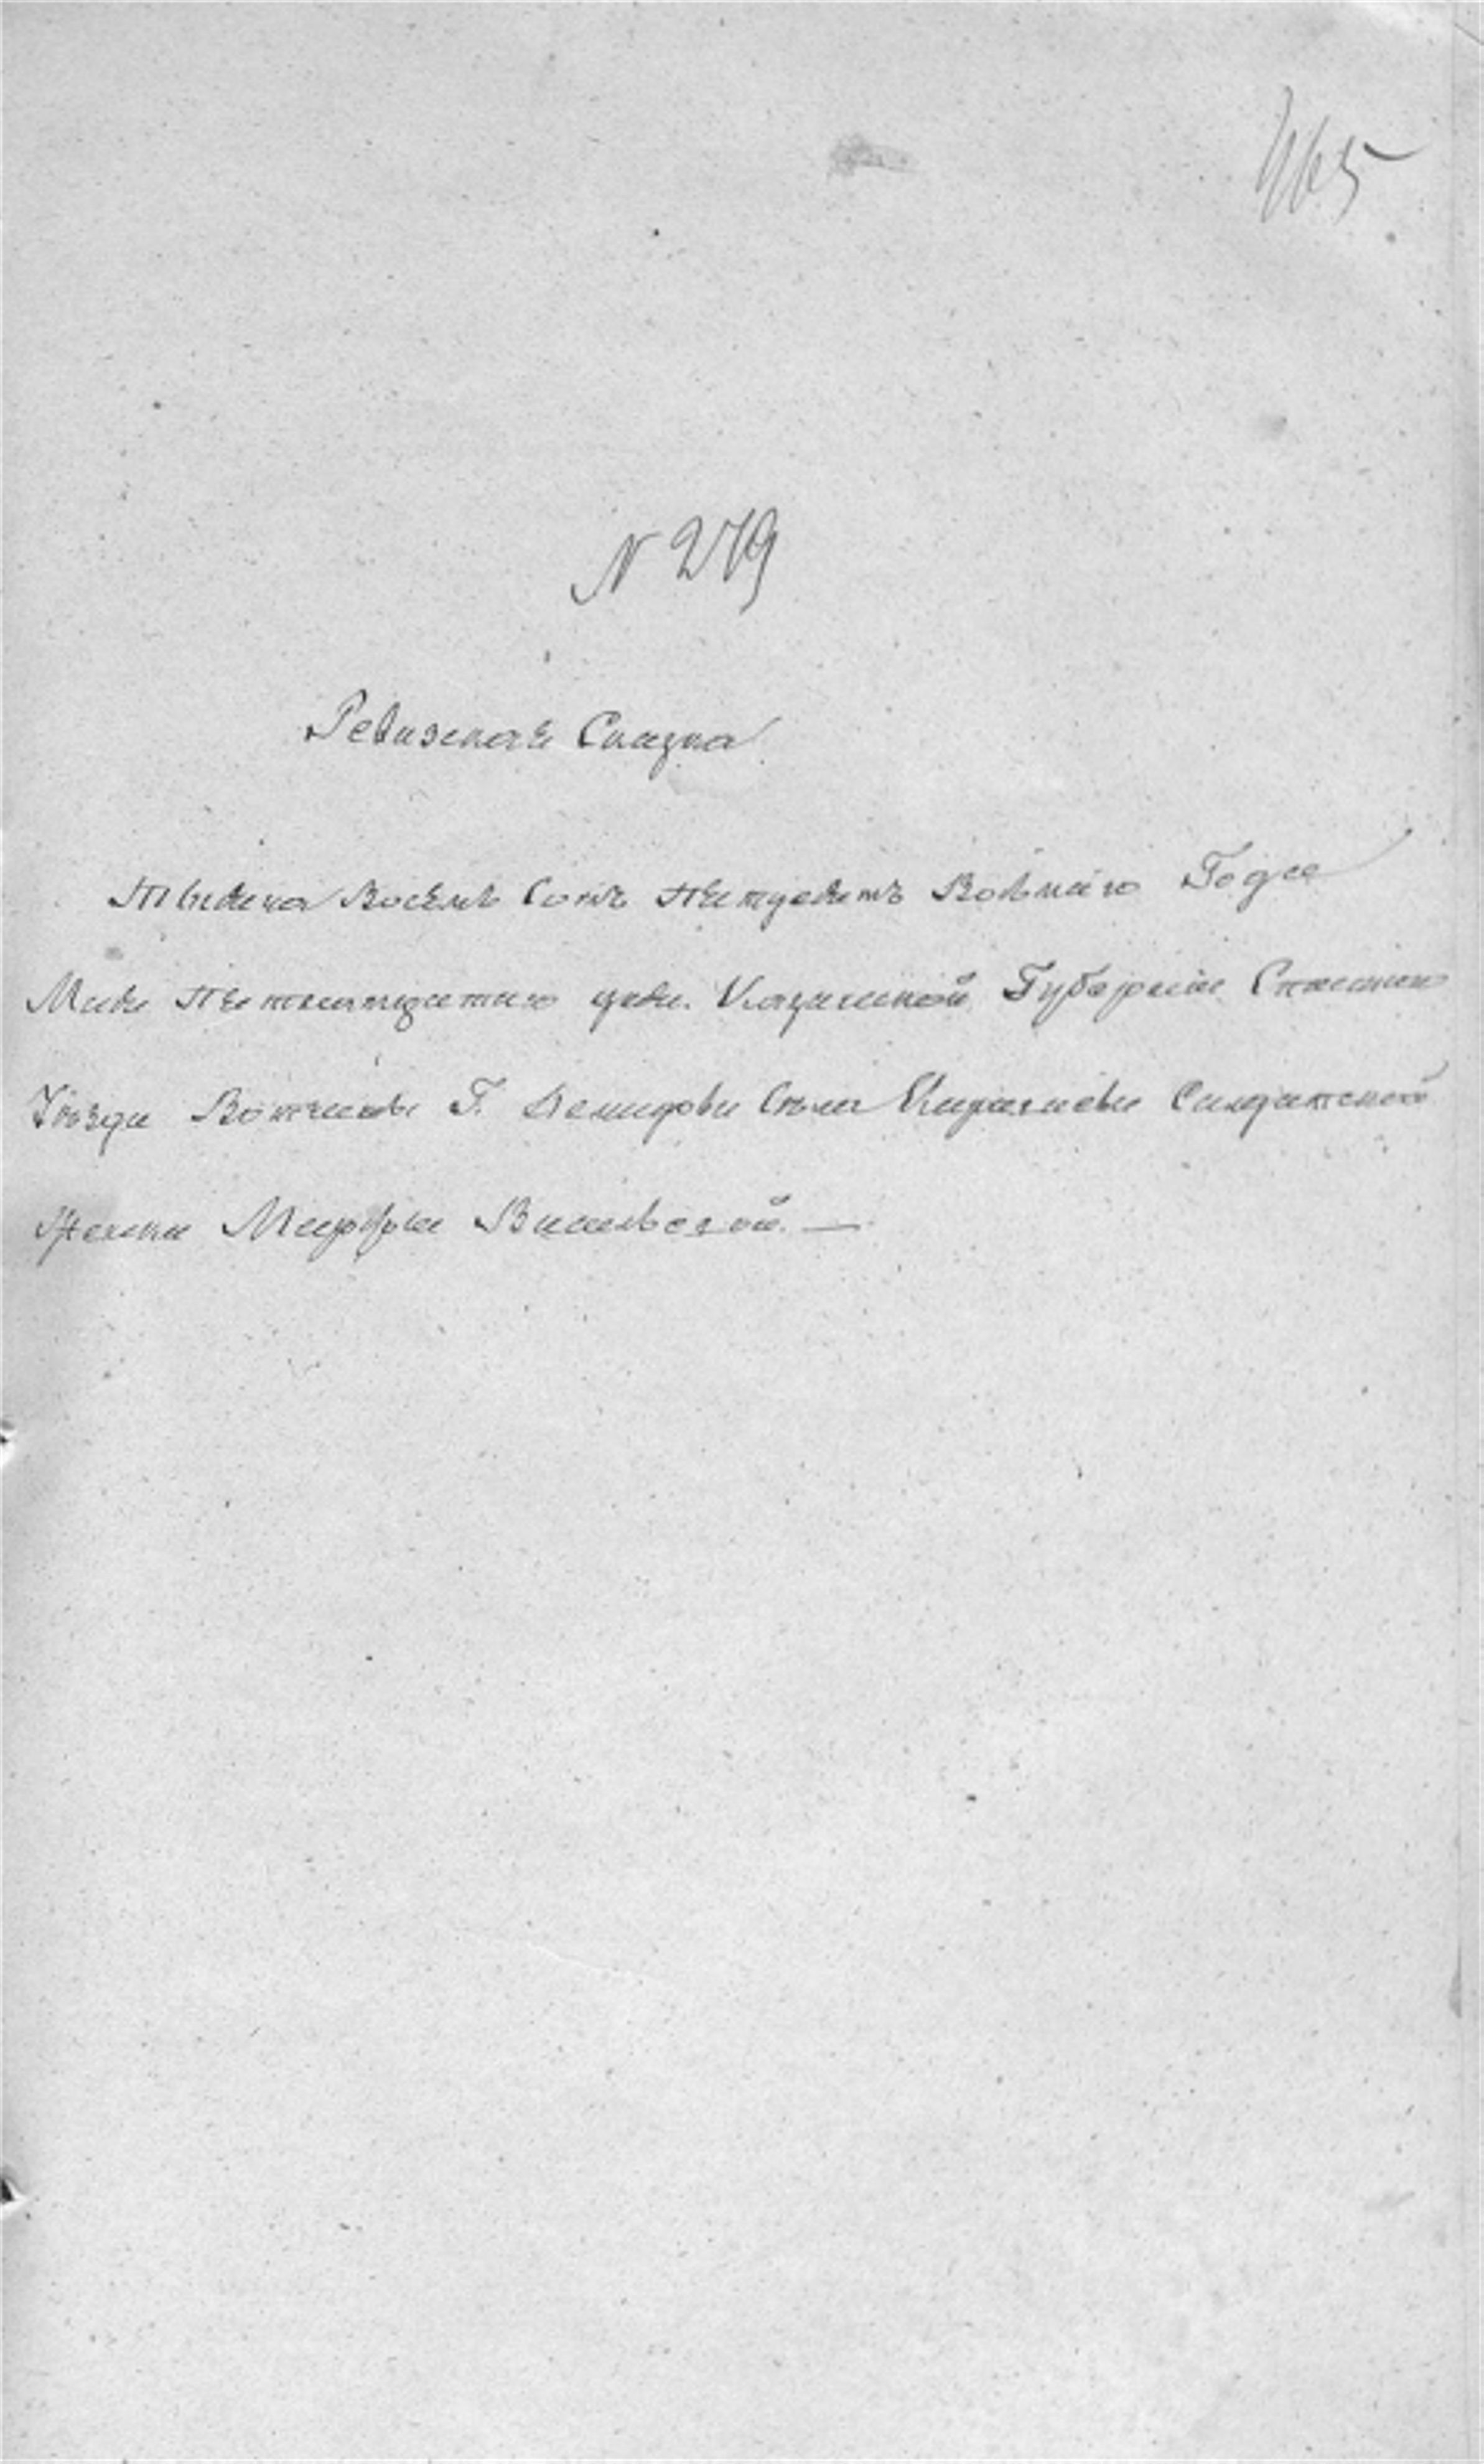 465
N 279
Ревизская Сказка
Тысяча восемь сотъ пятдесятъ восьмаго Года
Маія пятнатцатаго дня. Казанской Губерніи Спаскаго
Уѣзда Вотчины Г. Демидовы Села Солдатской
Жены Марфы Васильевой. —